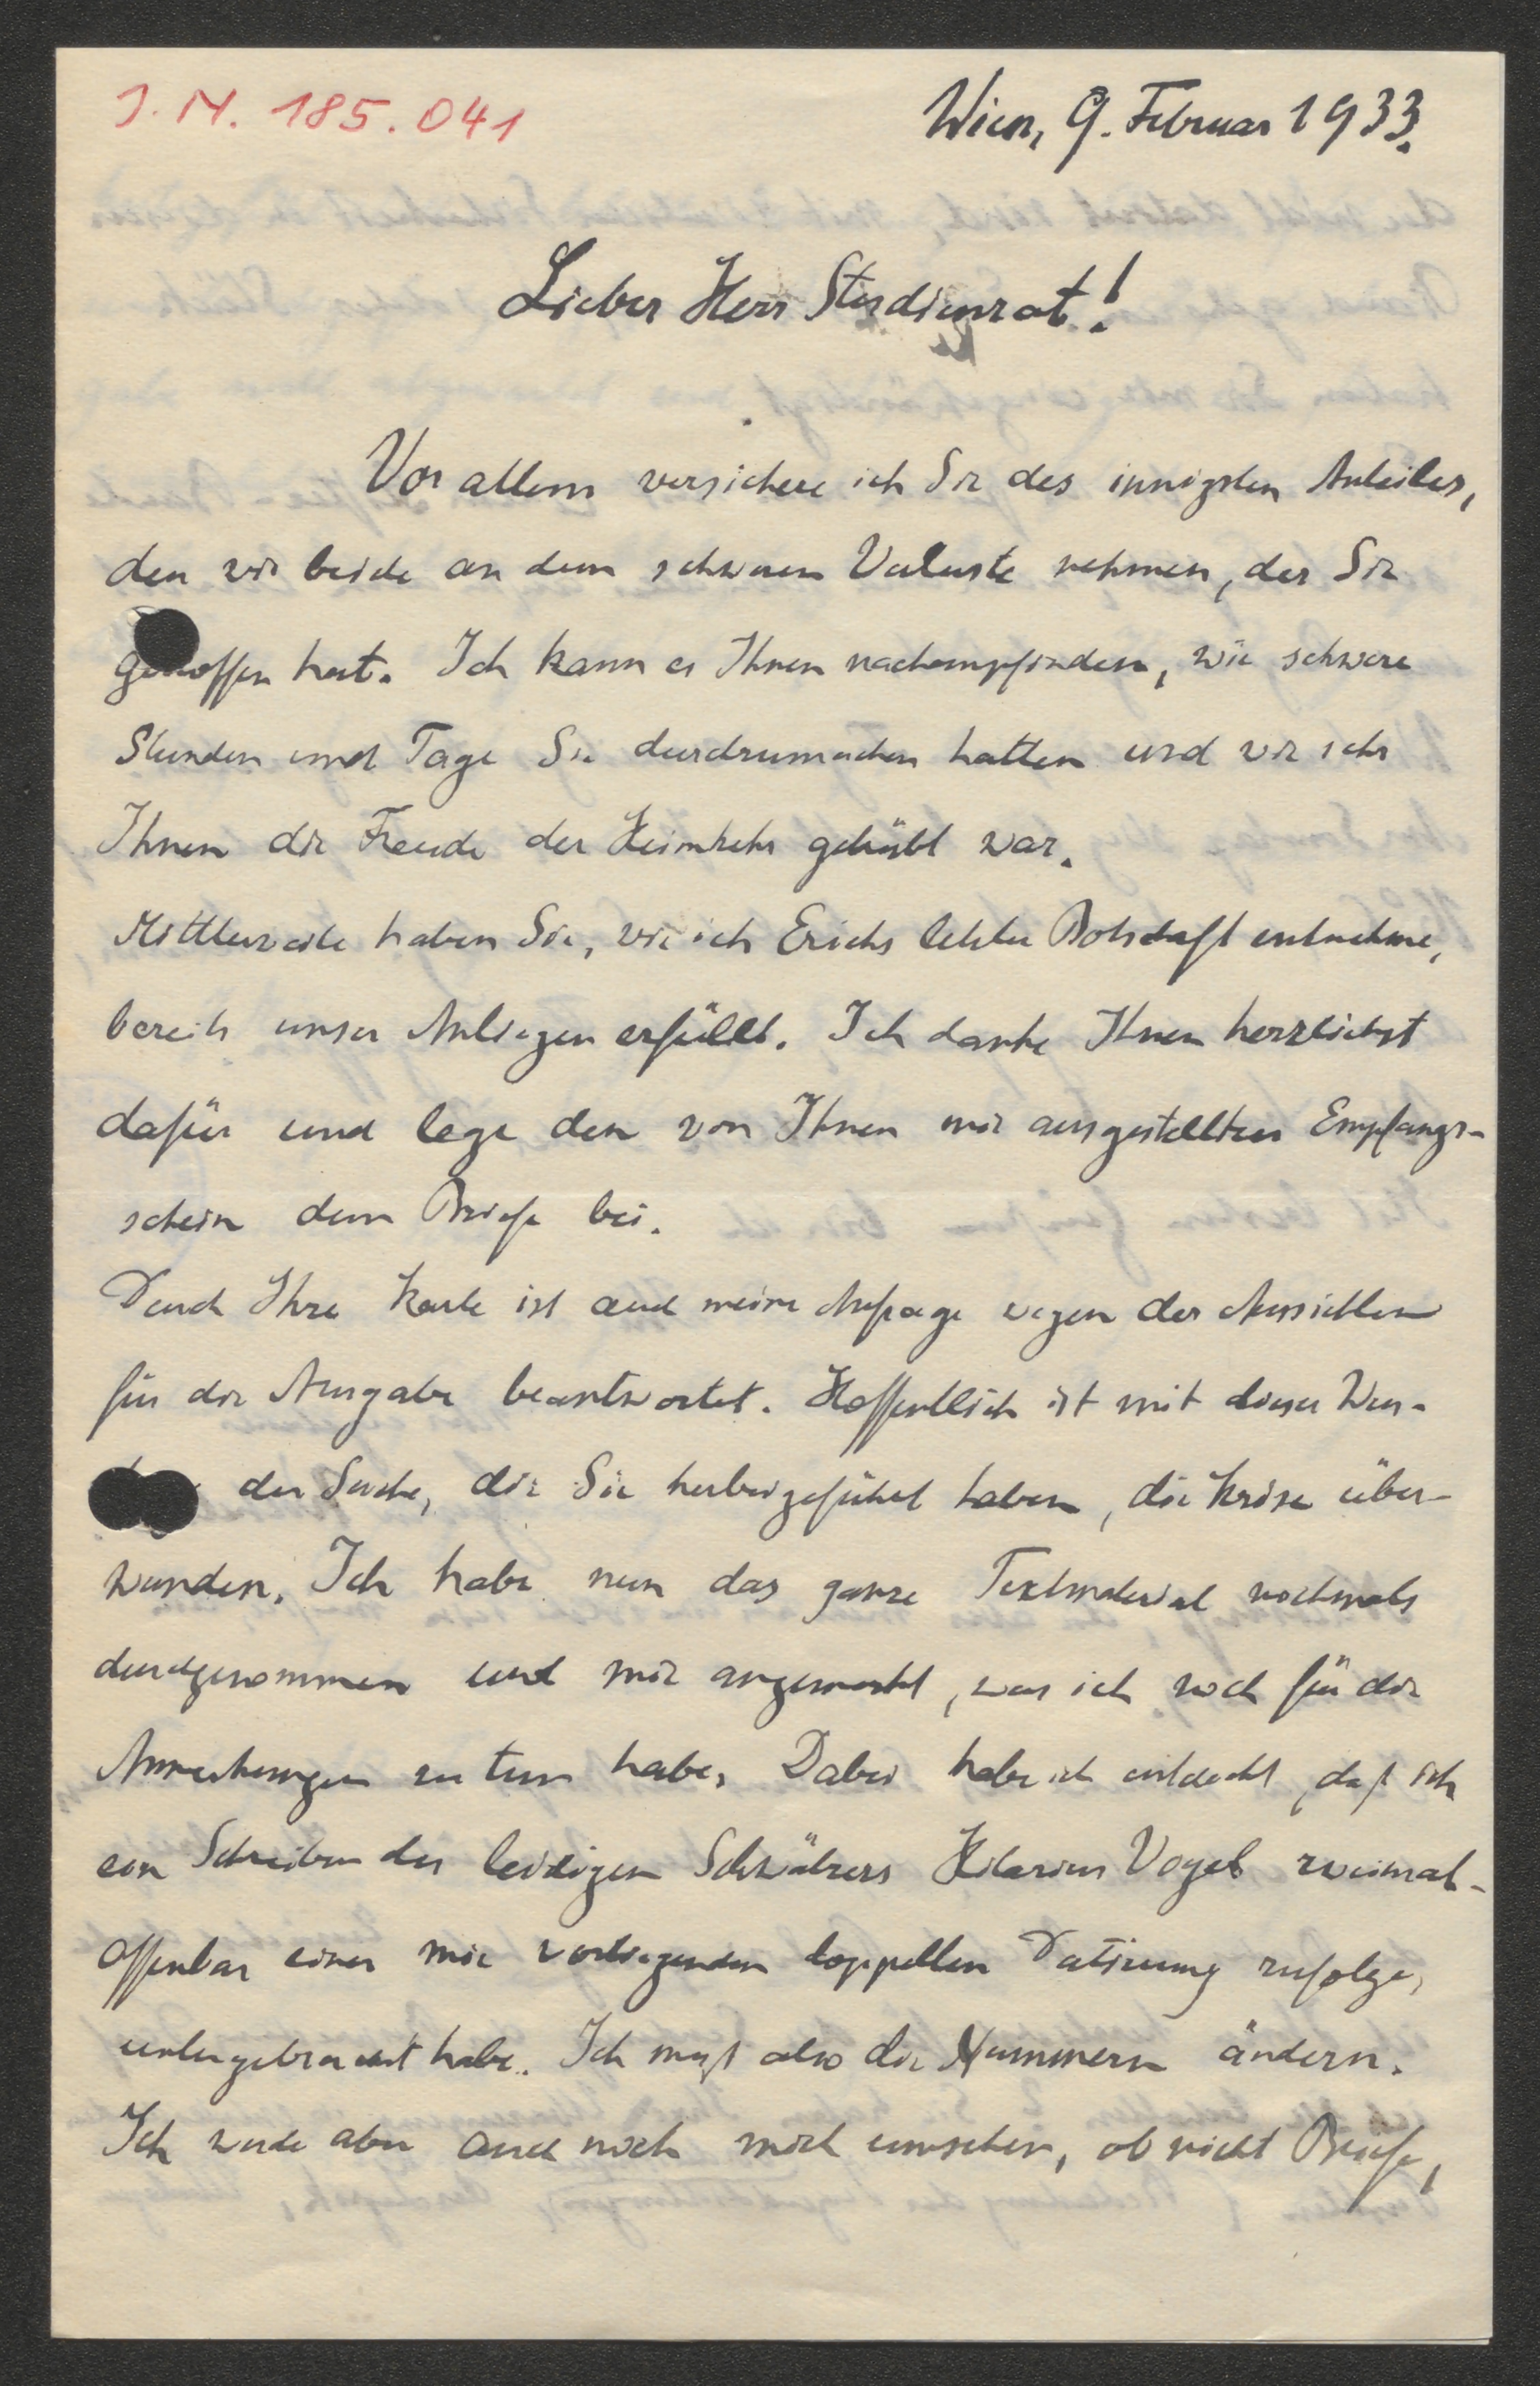 J. N. 185.041
Wien, 9. Februar 1933.
Lieber Herr Studienrat!
Vor allem versichere ich Sie des innigsten Anteiles,
den wir beide an dem schweren Verluste nehmen, der Sie
getroffen hat. Ich kann es Ihnen nachempfinden, wie schwere
Stunden und Tage Sie durchzumachen hatten und wie sehr
Ihnen die Freude der Heimkehr getrübt war.
Mittlerweile haben Sie, wie ich Erichs letzter Botschaft entnehme,
bereits unser Anliegen erfüllt. Ich danke Ihnen herzlichst
dafür und lege den von Ihnen mir ausgestellten Empfangs-
schein dem Briefe bei.
Durch Ihre Karte ist auch meine Anfrage wegen der Aussichten
für die Ausgabe beantwortet. Hoffentlich ist mit dieser Wen-
der Sache, die Sie herbeigeführt haben, die Krise über-
wunden. Ich habe nun das ganze Textmaterial nochmals
durchgenommen und mir angemerkt, was ich noch für die
Anmerkungen zu tun habe. Dabei habe ich entdeckt, daß ich
ein Schreiben des leidigen Schwätzers Hilarius Vogel zweimal -
offenbar einer mir vorliegenden doppelten Datierung zufolge,
untergebracht habe. Ich muß also die Nummern ändern.
Ich werde aber auch noch mich umsehen, ob nicht Briefe,